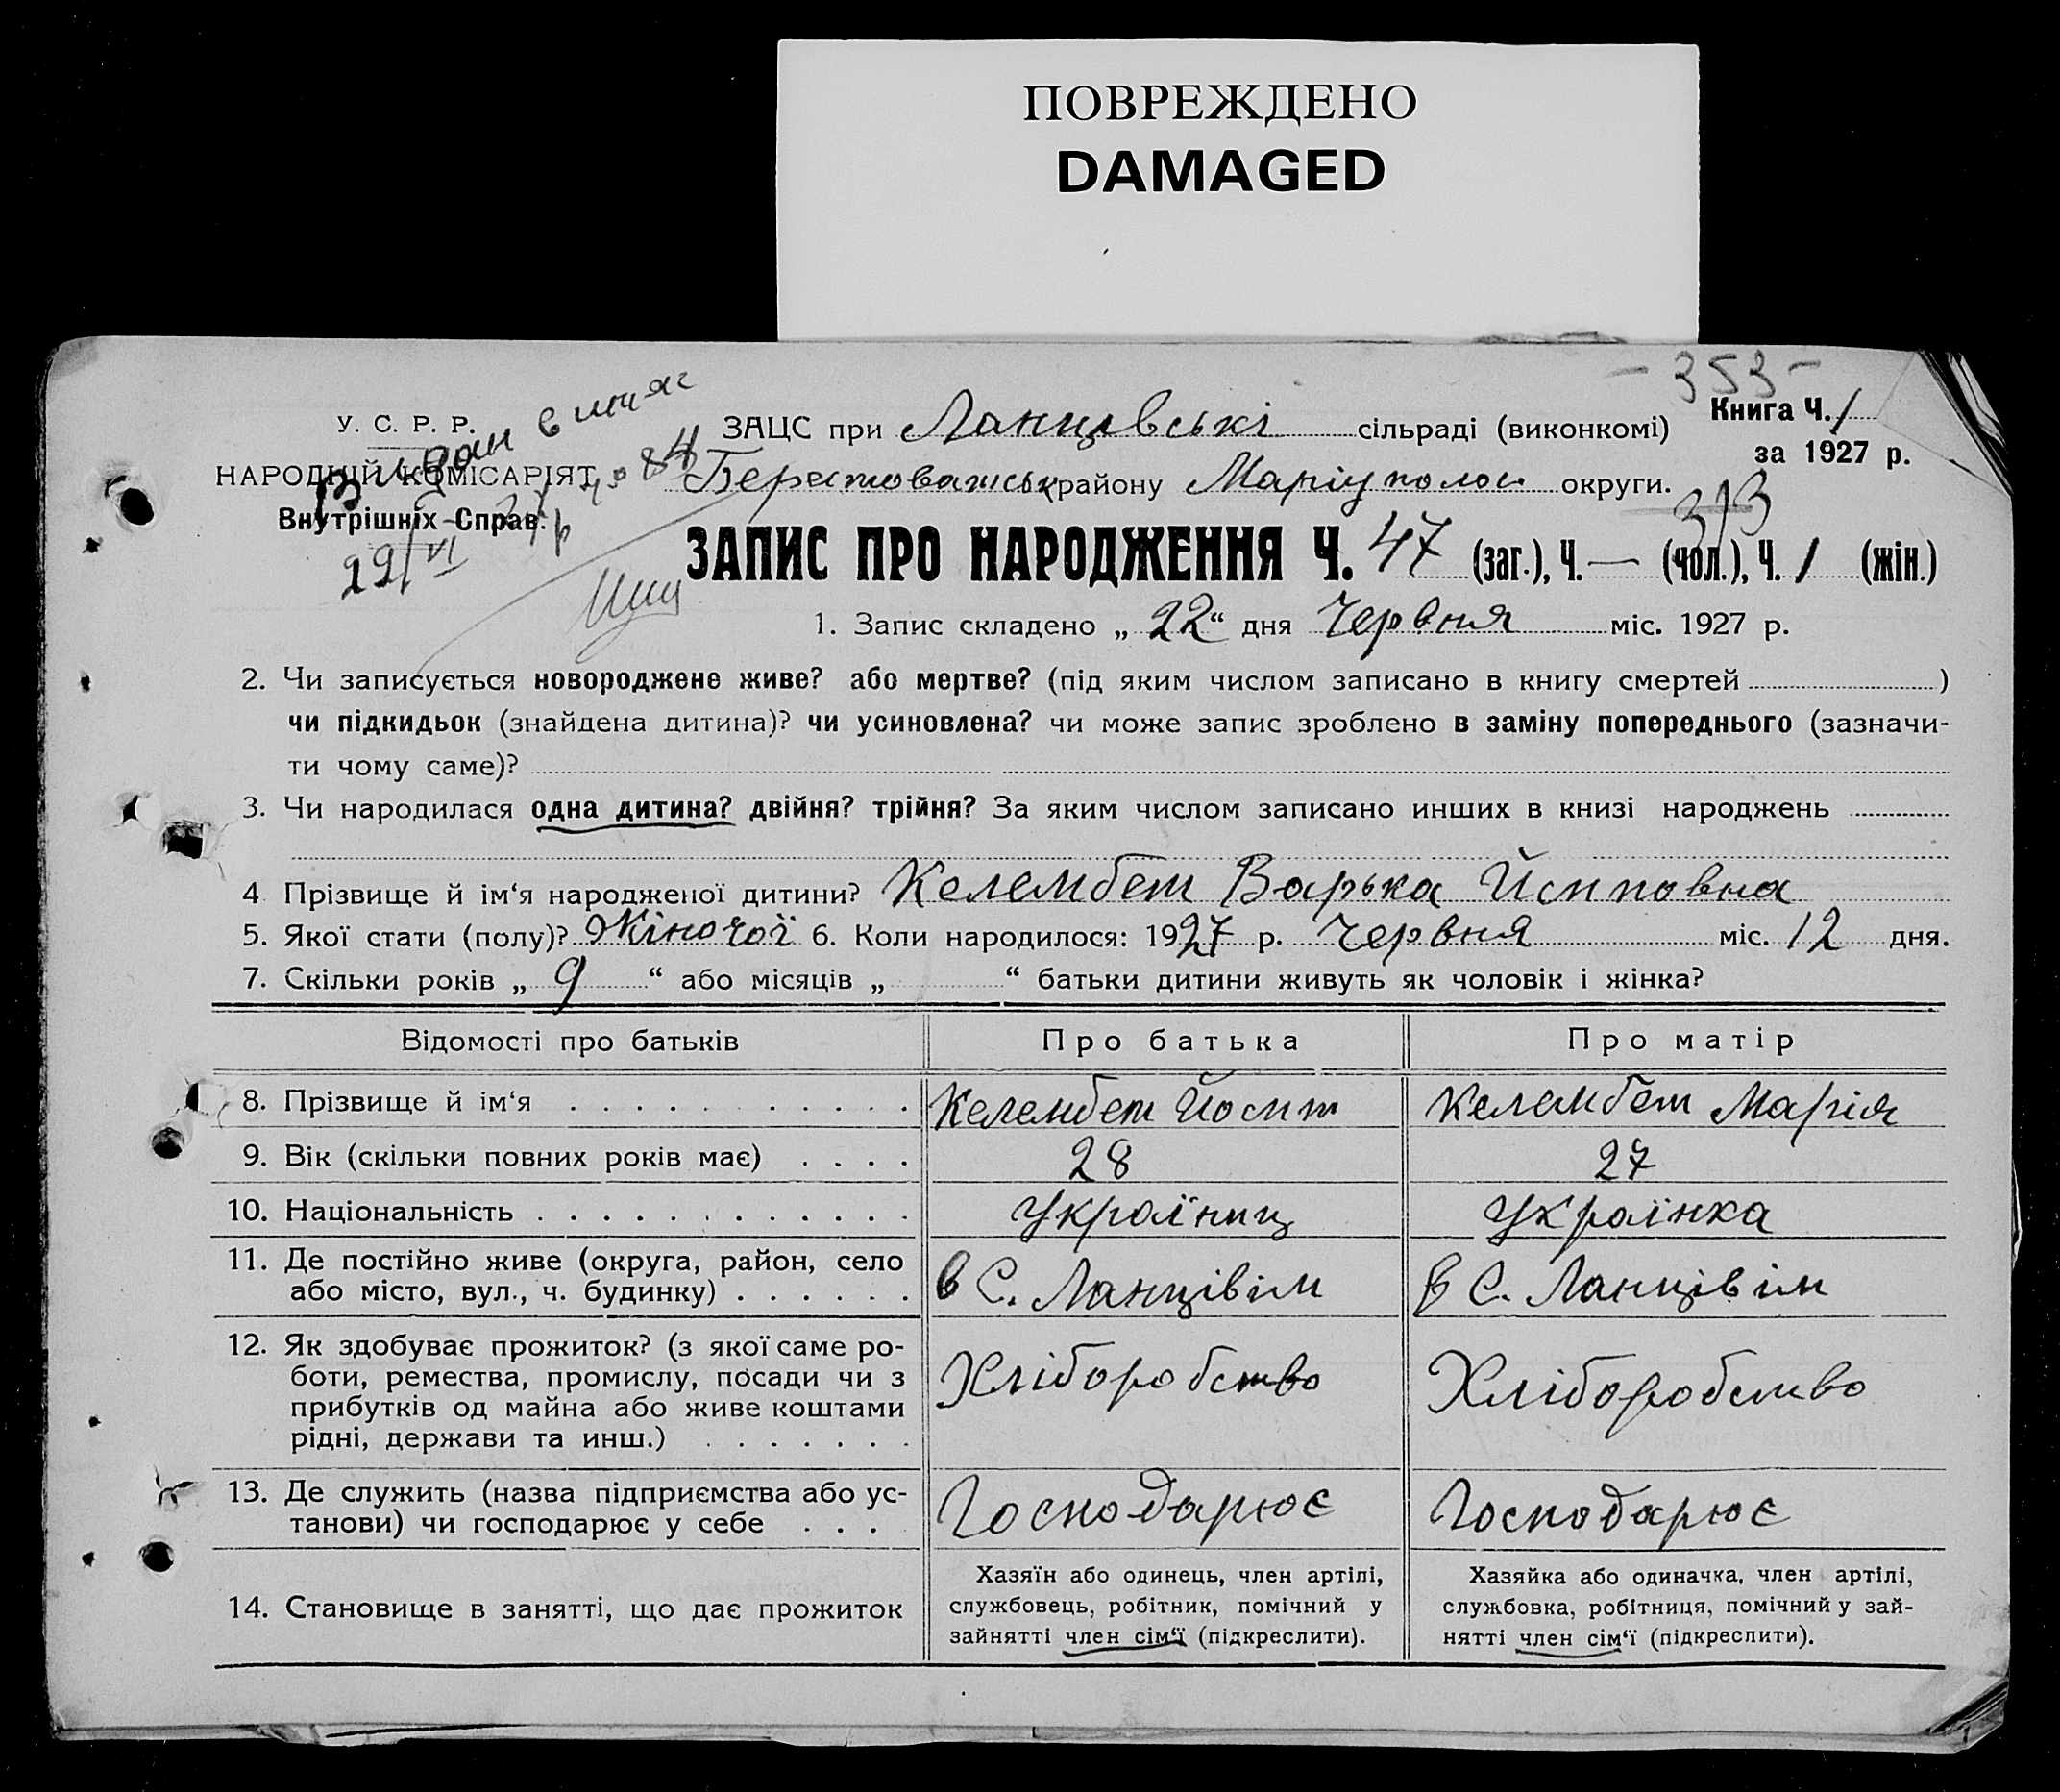 ПОВРЕЖДЕНО
DAMAGED
- 353 -
У. С. Р. Р.
НАРОДНІЙ КОМІСАРІЯТ
Внутрішніх Справ.
Видан витяг
22/VI
ЗАЦС при Ланцівські сільраді (виконкомі)
Книга Ч. 1
за 1927 р.
Берестоватськ району Маріуполск округи.
313
ЗАПИС ПРО НАРОДЖЕННЯ Ч. 47 (заг.), Ч. — (чол.), Ч. 1 (жін.)
1. Запис складено „ 22 “ дня Червня міс. 1927 р.
2. Чи записується новороджене живе? або мертве? (під яким числом записано в книгу смертей )
чи підкидьок (знайдена дитина)? чи усиновлена? чи може запис зроблено в заміну попереднього (зазначи-
ти чому саме)?
3. Чи народилася одна дитина? двійня? трійня? За яким числом записано инших в книзі народжень
4 Прізвище й ім‘я народженої дитини? Келембет Варька Йсиповна
5. Якої стати (полу)? Жіночої 6. Коли народилося: 1927 р. Червня міс. 12 дня.
7. Скільки років „ 9 “ або місяців „ “ батьки дитини живуть як чоловік і жінка?
Відомості про батьків Про батька Про матір
8. Прізвище й ім‘я Келембет Йосип Келембет Марія
9. Вік (скільки повних років має) 28 27
10. Національність Українць Українка
11. Де постійно живе (округа, район, село
або місто, вул., ч. будинку) в С. Ланцівім в С. Ланцівім
12. Як здобуває прожиток? (з якої саме ро-
боти, ремества, промислу, посади чи з
прибутків од майна або живе коштами
рідні, держави та инш.) Хліборобство Хліборобство
13. Де служить (назва підприємства або ус-
танови) чи господарює у себе Господарює Господарює
14. Становище в занятті, що дає прожиток
Хазяїн або одинець, член артілі,
службовець, робітник, помічний у
зайнятті член сім‘ї (підкреслити).
Хазяйка або одиначка, член артілі,
службовка, робітниця, помічний у зай-
нятті член сім‘ї (підкреслити).